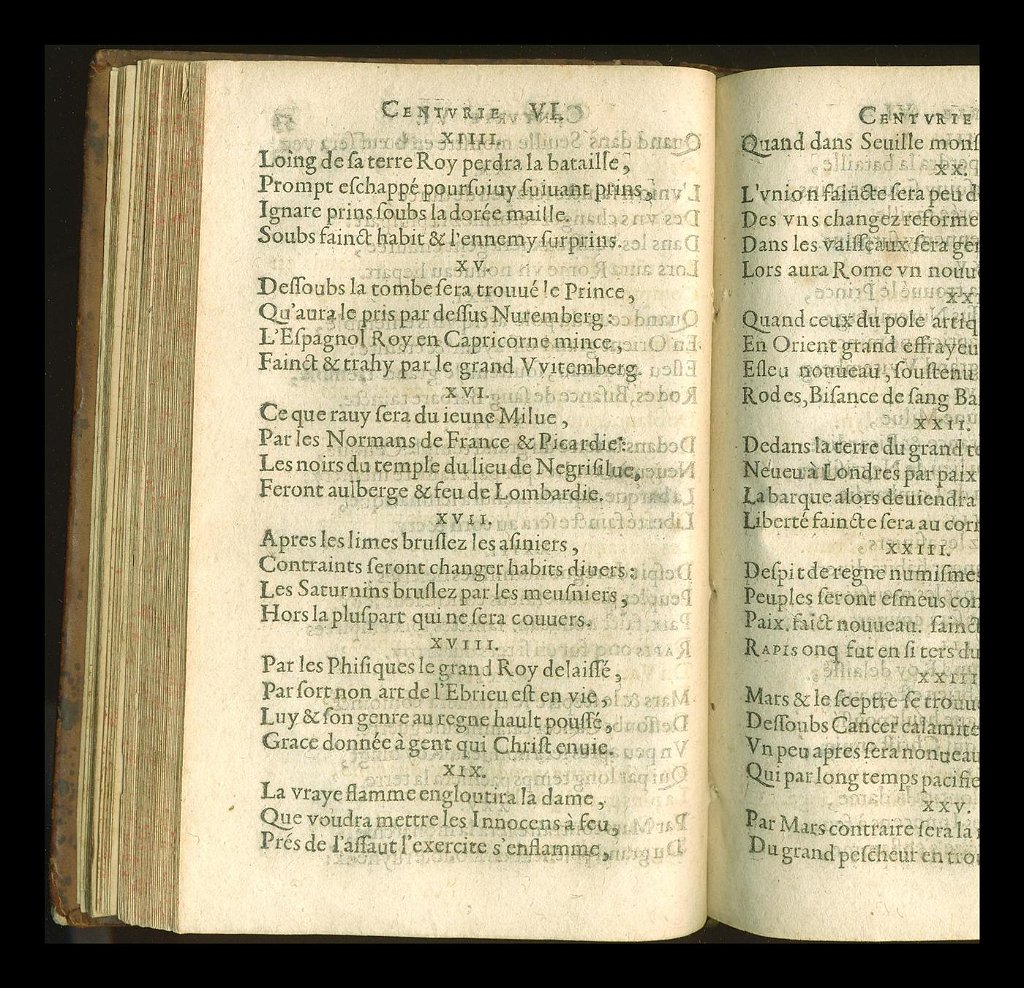 CENTVRIE VI.
XIIII.
Loing de ſa terre Roy perdra la bataille,
Prompt eſchappé pourſuiuy ſuiuant prins,
Ignare prins ſoubs la dorée maille.
Soubs fainct habit & l'ennemy ſurprins.
XV.
Deſſoubs la tombe ſera trouué le Prince,
Qu'aura le pris par deſſus Nuremberg:
L'Eſpagnol Roy en Capricorne mince,
Fainct & trahy par le grand Vvitemberg.
XVI.
Ce que rauy ſera du ieune Milue,
Par les Normans de France & Picardie:
Les noirs du temple du lieu de Negriſilue,
Feront aulberge & feu de Lombardie.
XVII.
Apres les limes bruſlez les aſiniers,
Contraints ſeront changer habits diuers:
Les Saturnins bruſlez par les meuſniers,
Hors la pluſpart qui ne ſera couuers.
XVIII.
Par les Phiſiques le grand Roy delaiſſé,
Par ſort non art de l'Ebrieu eſt en vie,
Luy & ſon genre au regne hault pouſſé,
Grace donnée à gent qui Chriſt enuie.
XIX.
La vraye flamme engloutira la dame,
Que voudra mettre les Innocens à feu,
Prés de l'aſſaut l'exercite s'enflamme,
CENTVRIE
Quand dans Seuille monſ
XX.
L'vnion faincte ſera peu d
Des vns changez reforme
Dans les vaiſſeaux ſera gen
Lors aura Rome vn nouu
XX
Quand ceux du pole artiq
En Orient grand effrayeu
Eſleu nouueau, ſouſtenu
Rodes, Biſance de ſang Ba
XXII.
Dedans la terre du grand te
Neueu à Londres par paix
La barque alors deuiendra
Liberté faincte ſera au corn
XXIII.
Deſpit de regne numiſmes
Peuples ſeront eſmeus con
Paix, faict nouueau, ſainct
RAPIS onq fut en ſi ters du
XXIIII
Mars & le ſceptre ſe trouu
Deſſoubs Cancer calamite
Vn peu apres ſera nouueau
Qui par long temps pacifie
XXV.
Par Mars contraire ſera la
Du grand peſcheur en trou